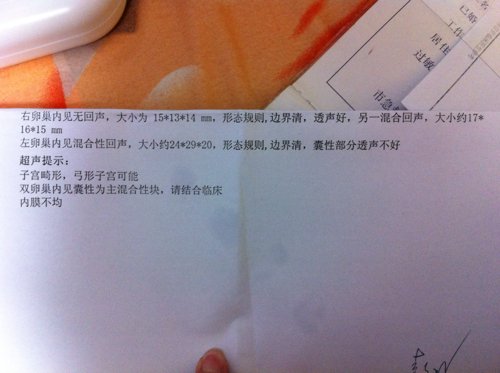 名
已婚
工作
居住
过敏
市急
右卵巢内见无回声，大小为 15*13*14 mm，形态规则,边界清，透声好，另一混合回声，大小约17*
16*15 mm
左卵巢内见混合性回声，大小约24*29*20，形态规则,边界清，囊性部分透声不好
超声提示：
子宫畸形，弓形子宫可能
双卵巢内见囊性为主混合性块，请结合临床
内膜不均